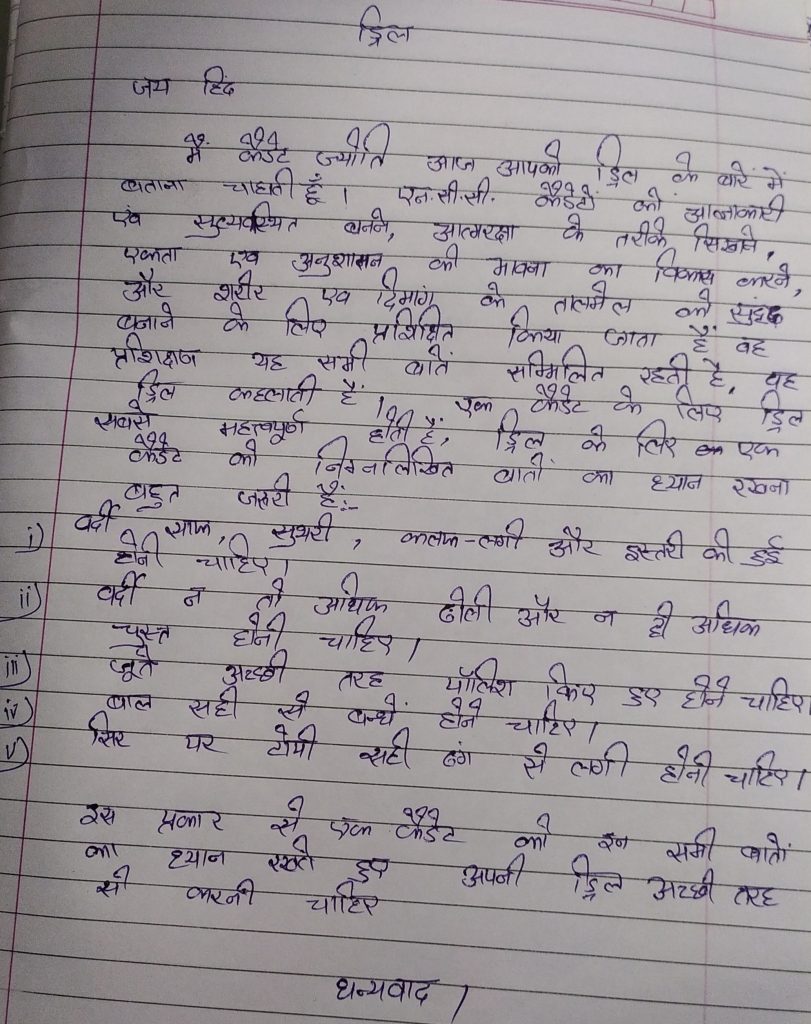 ड्रिल
जय हिंद
मैं कैडेट ज्योति आज आपको ड्रिल के बारे में
बताना चाहती हूँ। एन.सी.सी. कैडेटों को आज्ञाकारी
एवं सुव्यवस्थित बनने, आत्मरक्षा के तरीके सिखाने,
एकता एवं अनुशासन की भावना का विकास करने,
और शरीर एवं दिमाग के तालमेल को सुदृढ
बनाने के लिए प्रशिक्षित किया जाता है वह
प्रशिक्षण यह सभी बातें सम्मिलित रहती है, वह
ड्रिल कहलाती हैं। एक कैडेट के लिए ड्रिल
सबसे महत्वपूर्ण होती हैं, ड्रिल के लिए एक
कैडेट को निम्नलिखित बातों का ध्यान रखना
बहुत जरुरी हैं:-
i) वर्दी साफ, सुथरी, कलफ-लगी और इस्तरी की हुई
होनी चाहिए।
ii) वर्दी न तो अधिक ढीली और न ही अधिक
चुस्त होनी चाहिए।
iii) जूते अच्छी तरह पॉलिश किए हुए होने चाहिए।
iv) बाल सही से बन्धें होने चाहिए।
v) सिर पर टोपी सही ढंग से लगी होनी चाहिए।
इस प्रकार से एक कैडेट को इन सभी बातों
का ध्यान रखते हुए अपनी ड्रिल अच्छी तरह
से करनी चाहिए
धन्यवाद।